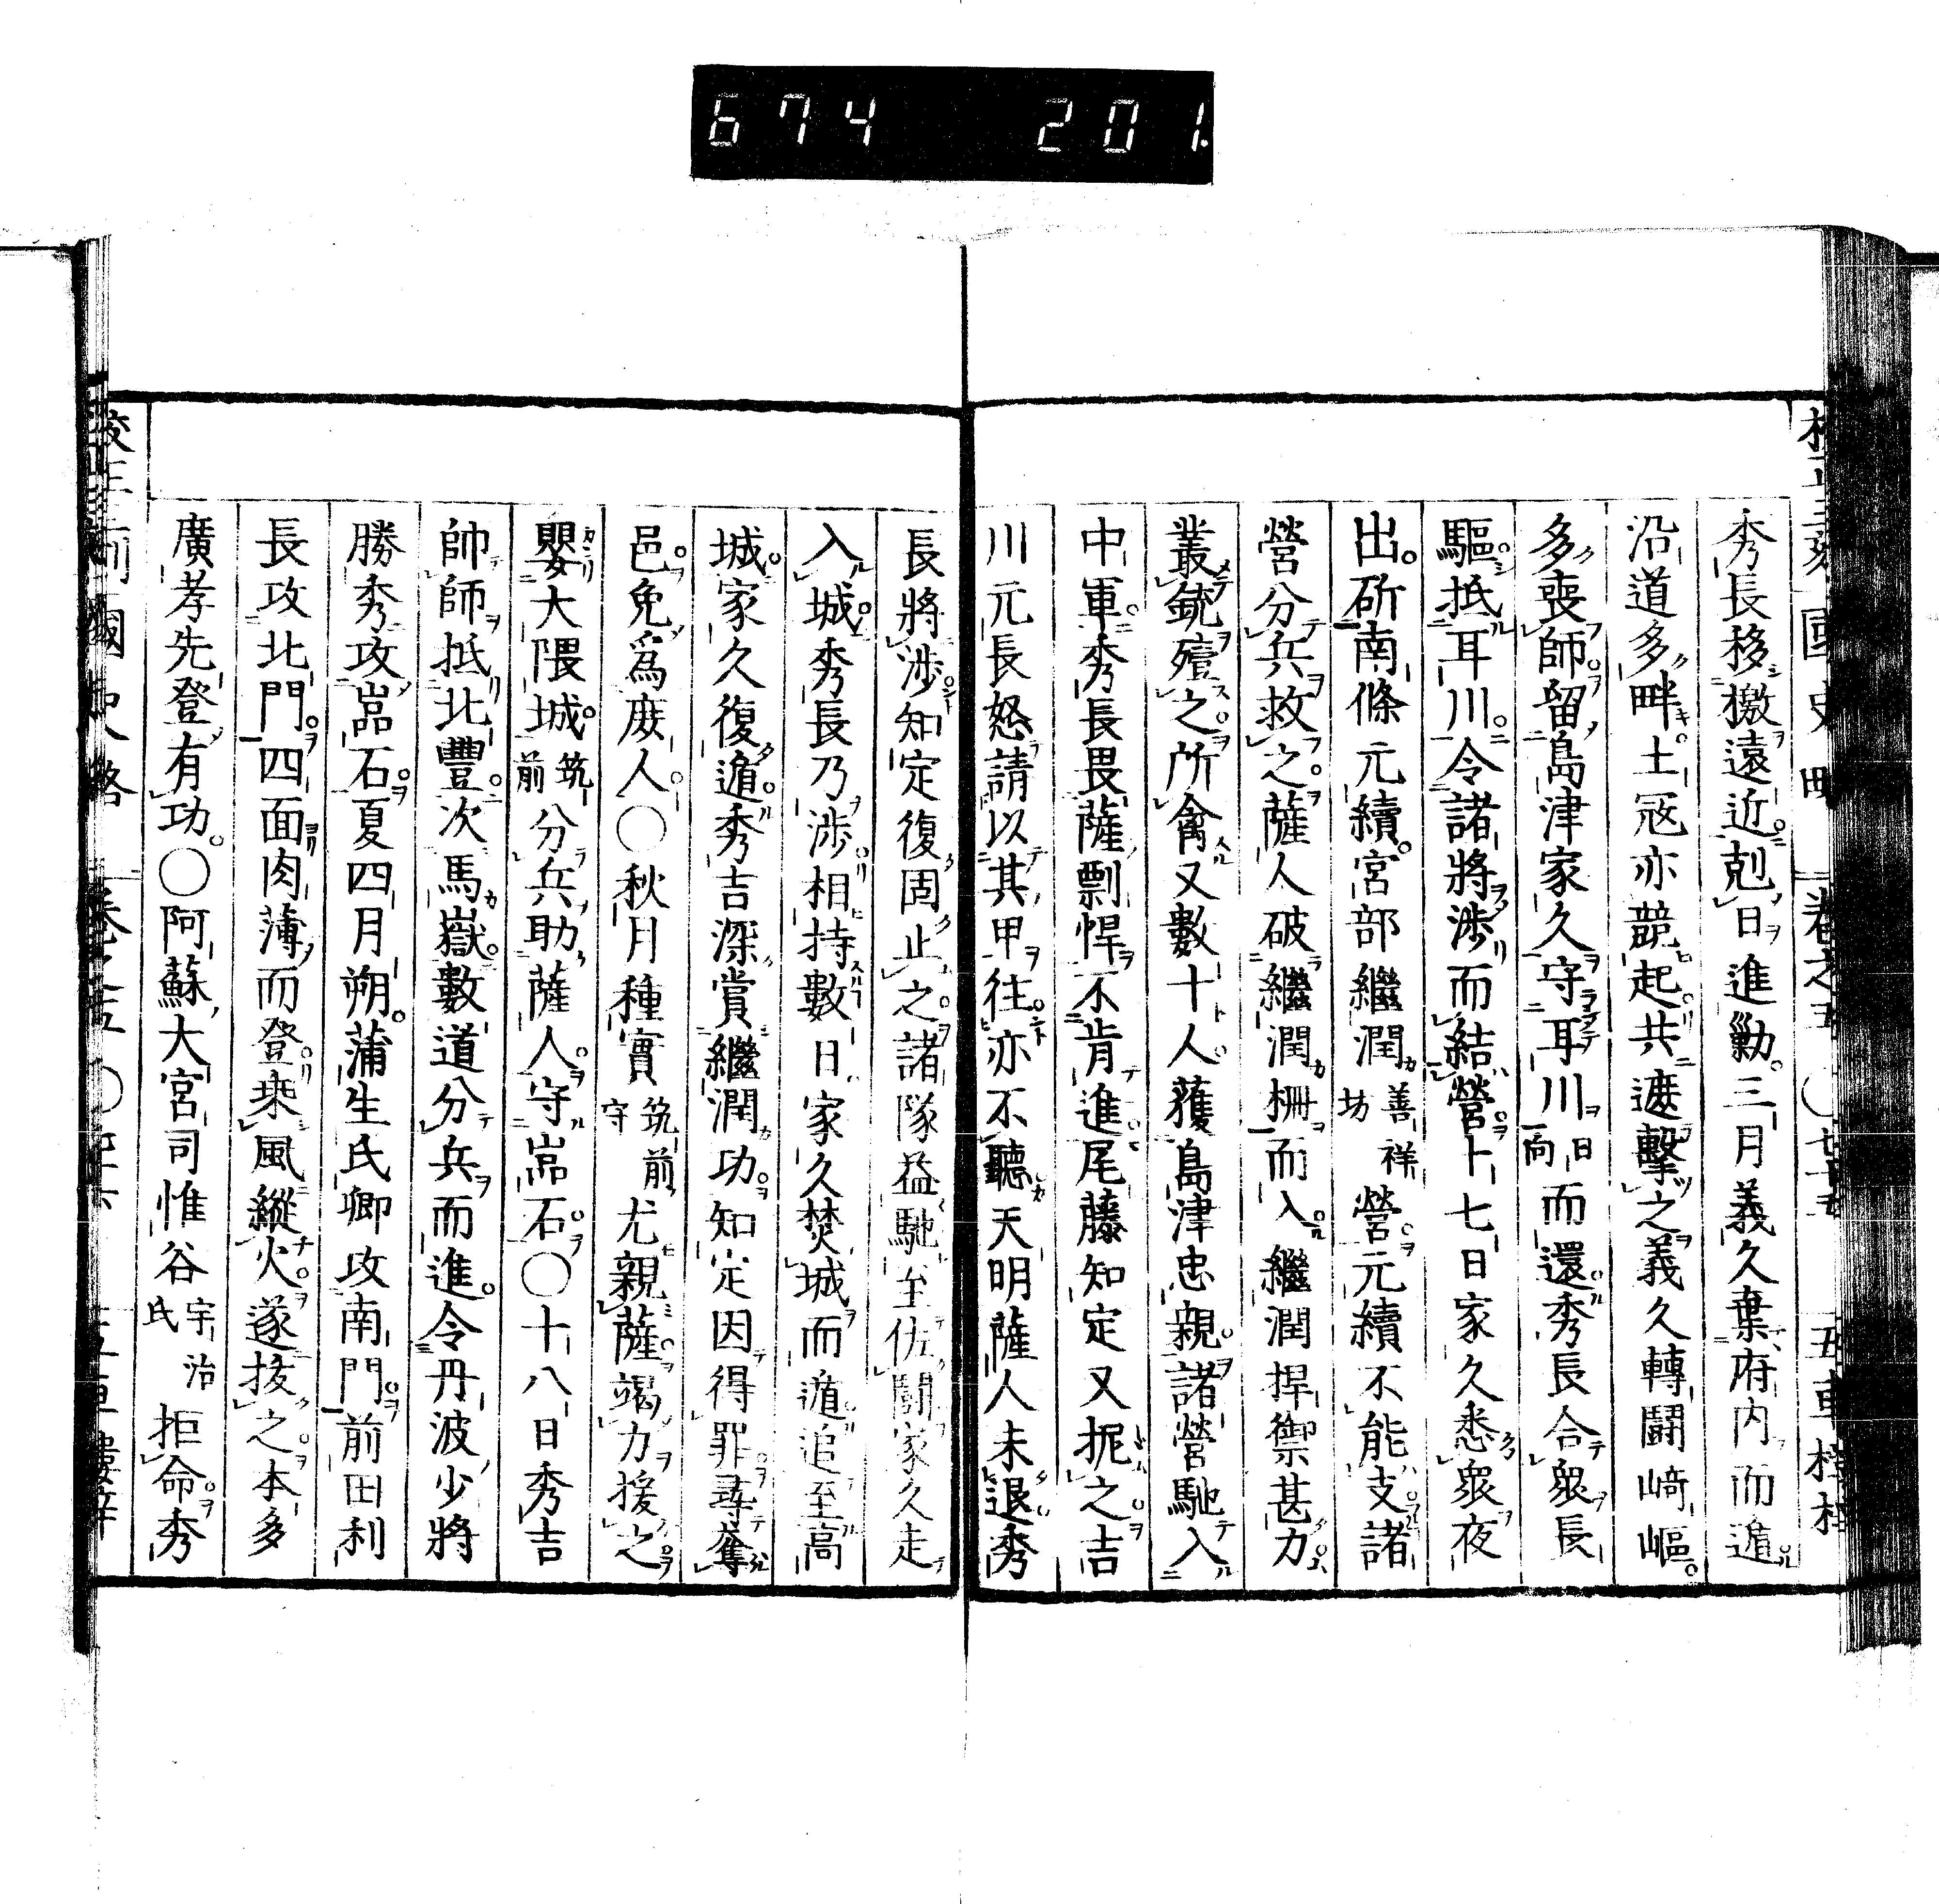 674 201.
秀長移檄遠近剋日進勦三月義久棄府内而遁
沿道多畔土冦亦競起共遮擊之義久轉鬪﨑嶇
多喪師留島津家久守耳川日向而還秀長合衆長
驅抵耳川令諸將渉而結營十七日家久悉衆夜
出斫南條元續宮部繼潤善祥坊營元續不能支諸
營分兵救之薩人破繼潤柵而入繼潤捍禦甚力
叢銃殪之所禽又數十人獲島津忠親諸營馳入
中軍秀長畏薩剽悍不肯進尾藤知定又抳之吉
川元長怒請以其甲往亦不聽天明薩人未退秀
長將渉知定復固止之諸隊益馳至佐鬪家久走
入城秀長乃渉相持數日家久焚城而遁追至高
城家久復遁秀吉深賞繼潤功知定因得罪尋奪
邑免爲庻人〇秋月種實筑前守尤親薩竭力援之
嬰大隈城筑前分兵助薩人守嵓石〇十八日秀吉
帥師抵北豐次馬嶽數道分兵而進令丹波少將
勝秀攻嵓石夏四月朔蒲生氏卿攻南門前田利
長攻北門四面肉薄而登乗風縱火遂拔之本多
廣孝先登有功〇阿蘇大宮司惟谷宇治氏拒命秀